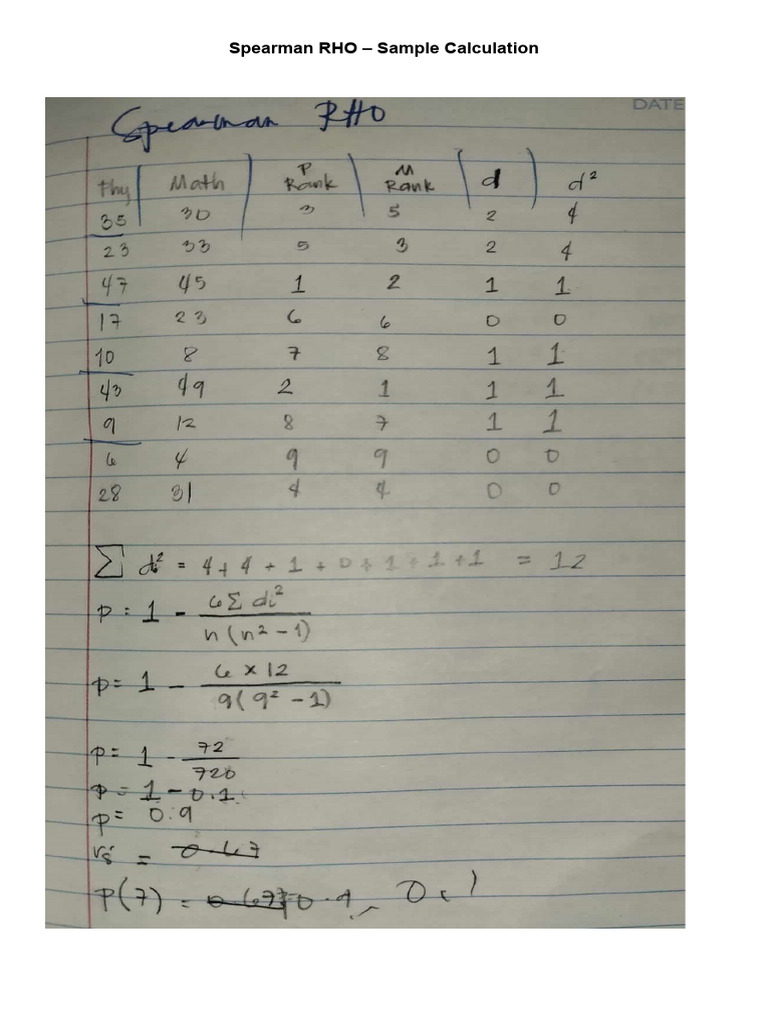 Spearman RHO – Sample Calculation
DATE
Spearman RHO
Phy Math P Rank M Rank d d²
35 30 3 5 2 4
23 33 5 3 2 4
47 45 1 2 1 1
17 23 6 6 0 0
10 8 7 8 1 1
43 49 2 1 1 1
9 12 8 7 1 1
6 4 9 9 0 0
28 31 4 4 0 0
∑ di² = 4 + 4 + 1 + 0 + 1 + 1 + 1 = 12
p = 1 - 6∑di² / n(n² - 1)
p = 1 - 6 × 12 / 9(9² - 1)
p = 1 - 72 / 720
p = 1 - 0.1
p = 0.9
rs = 0.67
P(7) = 0.67